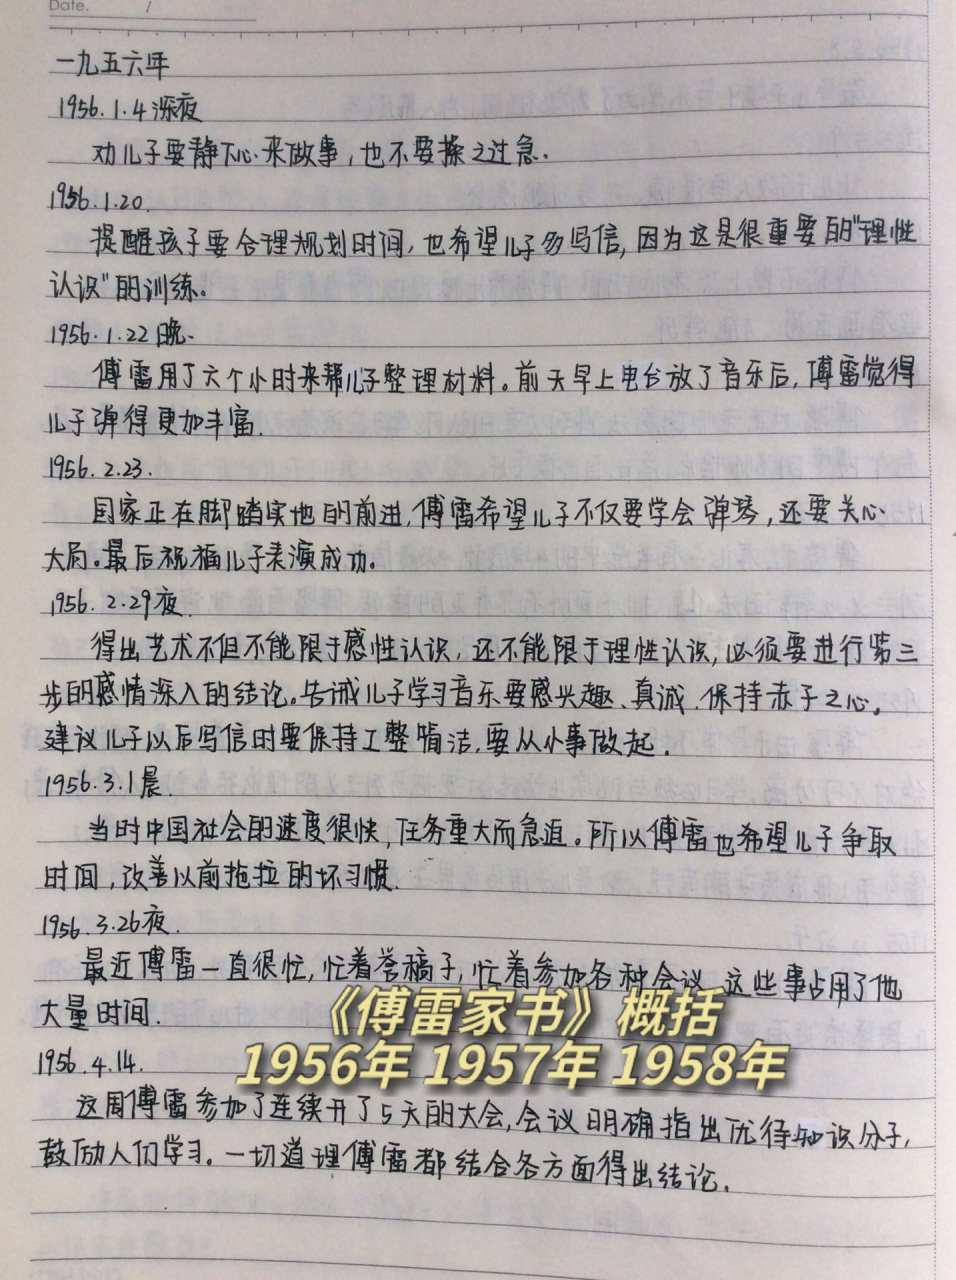 Date.      /
一九五六年
1956.1.4深夜
劝儿子要静下心来做事，也不要操之过急.
1956.1.20.
提醒孩子要合理规划时间，也希望儿子多写信，因为这是很重要的"理性
认识"的训练。
1956.1.22晚.
傅雷用了六个小时来帮儿子整理材料。前天早上电台放了音乐后，傅雷觉得
儿子弹得更加丰富.
1956.2.23.
国家正在脚踏实地的前进，傅雷希望儿子不仅要学会弹琴，还要关心
大局。最后祝福儿子表演成功。
1956.2.29夜.
得出艺术不但不能限于感性认识，还不能限于理性认识，必须要进行第三
步的感情深入的结论。告诫儿子学习音乐要感兴趣、真诚、保持赤子之心。
建议儿子以后写信时要保持工整简洁，要从小事做起.
1956.3.1晨.
当时中国社会的速度很快，任务重大而急迫。所以傅雷也希望儿子争取
时间，改善以前拖拉的坏习惯.
1956.3.26夜.
最近傅雷一直很忙，忙着誊稿子，忙着参加各种会议 这些事占用了他
大量时间.
《傅雷家书》概括
1956年 1957年 1958年
1956.4.14.
这周傅雷参加了连续开了5天的大会，会议明确指出优待知识分子，
鼓励人们学习。一切道理傅雷都结合各方面得出结论.